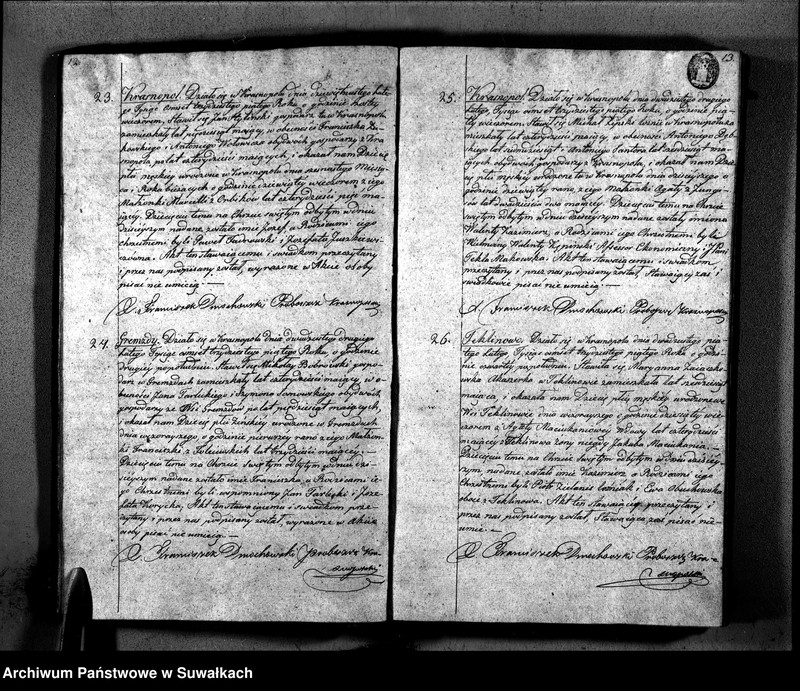 12
23. Krasnopol. Działo się w Krasnopolu dnia dziewiętnastego Lute-
go Tysiąc ośmset trzydziestego piątego Roku o godzinie szóstej
wieczorem, Stawił się Jan gospodarz tu w Krasnopolu
zamieszkały lat pięćdziesiąt mający, w obecności Franciszka
i Antoniego obydwóch gospodarzy z Kra-
snopola, po lat czterdzieści mających, i okazał nam Dziecię
płci męskiej urodzone w Krasnopolu dnia Miesią-
ca i Roku bieżących o godzinie dziewiątej wieczorem z jego
Małżonki Maryanny z lat czterdzieści pięć ma-
jącej. Dziecięciu temu na Chrzcie świętym odbytym w dniu
dzisiejszym nadane zostało imie Józef, a Rodzicami jego
chrzestnemi byli Paweł i Józefata
Akt ten stawaiącemu i świadkom przeczytany
i przez nas podpisany został, wyrażone w Akcie osoby
pisać nie umieią. —
X. Franciszek Dmochowski Proboszcz Krasnopolski
24. Gremzdy. Działo się w Krasnopolu dnia dwudziestego drugiego
Lutego Tysiąc ośmset trzydziestego piątego Roku, o godzinie
drugiej popołudniu. Stawił się Mikołay Bobrowski gospo-
darz w Gremzdach zamieszkały lat czterdzieści mający, w o-
becności Jana Tarleckiego i Szymona obydwóch
gospodarzy ze Wsi Gremzdów po lat pięćdziesiąt mających,
i okazał nam Dziecię płci żeńskiej urodzone w Gremzdach
dnia wczorayszego, o godzinie pierwszej rano z jego Małżon-
ki Franciszki z lat trzydzieści mającej. —
Dziecięciu temu na Chrzcie Świętym odbytym w dniu dzi-
siejszym nadane zostało imie Franciszka, a Rodzicami je-
go Chrzestnemi byli wspomniony Jan Tarlecki i Józe-
fata Korycka. Akt ten stawaiącemu i świadkom prze-
czytany i przez nas podpisany został, wyrażone w Akcie
osoby pisać nie umieią —
X. Franciszek Dmochowski Proboszcz Kra-
snopolski
13
25. Krasnopol. Działo się w Krasnopolu dnia dwudziestego drugiego
Lutego, Tysiąc ośmset trzydziestego piątego Roku, o godzinie pią-
tej wieczorem. Stawił się Michał w Krasnopolu za-
mieszkały lat czterdzieści mający, w obecności Antoniego
lat siedmdziesiąt, i Antoniego lat ma-
jących obydwóch gospodarzy z Krasnopola, i okazał nam Dzie-
cię płci męskiej urodzone tu w Krasnopolu dnia dzisiejszego o
godzinie dziewiątej rano, z jego Małżonki Agaty z
lat dwadzieścia dwa mającej. Dziecięciu temu na Chrzcie
świętym odbytym w dniu dzisiejszym nadane zostały imiona
Walenty Kazimierz, a Rodzicami jego Chrzestnemi byli
Wielmożny Walenty Assesor Ekonomiczny i Pani
Tekla Makowska. Akt ten stawaiącemu i świadkom
przeczytany i przez nas podpisany został, Stawaiący zaś i
świadkowie pisać nie umieią. —
X. Franciszek Dmochowski Proboszcz Krasnopolski
26. Teklinowo. Działo się w Krasnopolu dnia dwudziestego pią-
tego Lutego Tysiąc ośmset trzydziestego piątego Roku, o godzi-
nie czwartej popołudniu. Stawiła się Maryanna Zaiaczko-
wska Akuszerka w Teklinowie zamieszkała lat
maiąca, i okazała nam Dziecię płci męskiej urodzone we
Wsi Teklinowie dnia wczorayszego o godzinie dziesiątej wie-
czorem z Agaty Maciukaniowej Wdowy, lat czterdzieści
maiącej z Teklinowa żony niegdy Jakuba Maciukania. —
Dziecięciu temu na Chrzcie Świętym odbytym w Dniu dzisiey-
szym nadane zostało imie Kazimierz, a Rodzicami jego
Chrzestnemi byli Piotr i Ewa
oboie z Teklinowa. Akt ten Stawaiącey przeczytany i
przez nas podpisany został, Stawaiąca zaś pisać nie
umie. —
X. Franciszek Dmochowski Proboszcz Kra-
snopolski
Archiwum Państwowe w Suwałkach